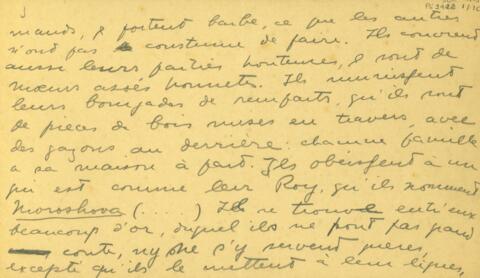 3
P63422 1/10
mands, & portent barbe, ce que les autres
n'ont pas le coustume de faire. Ils couvrent
aussi leurs parties honteuses, & sont de
mœurs assés honnets. Ils munissent
leurs bourgades de remparts, qu'ils sont
de pieces de bois mises en travers, avec
des gazons au derrière. chacune famille
a sa maison à part. Ils obeissent à un
qui est comme leur Roy, qu'ils nomment
Moroshova (....) Il se trouve entr'eux
beaucoup d'or, duquel ils ne font pas grand
conte, ny ne s'y servent gueres,
excepté qu'ils le mettent à leur lignes,